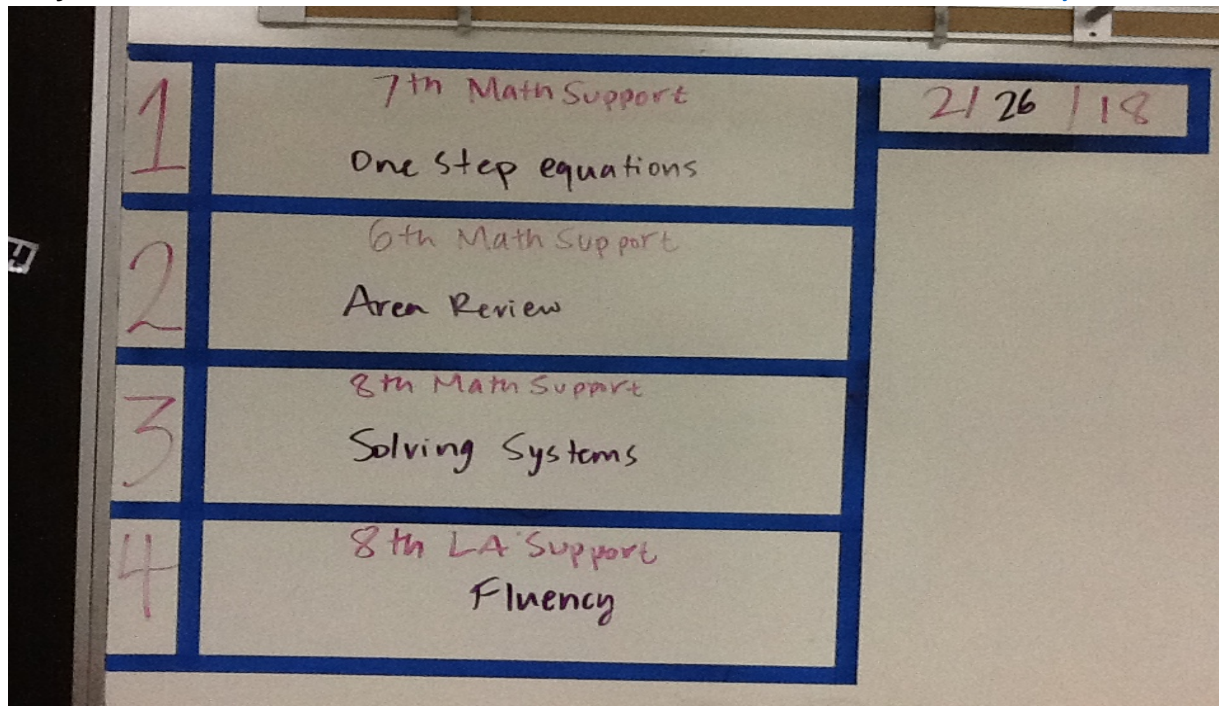 1
7th Math Support
One step equations
2/26/18
2
6th Math Support
Area Review
3
8th Math Support
Solving Systems
4
8th LA Support
Fluency